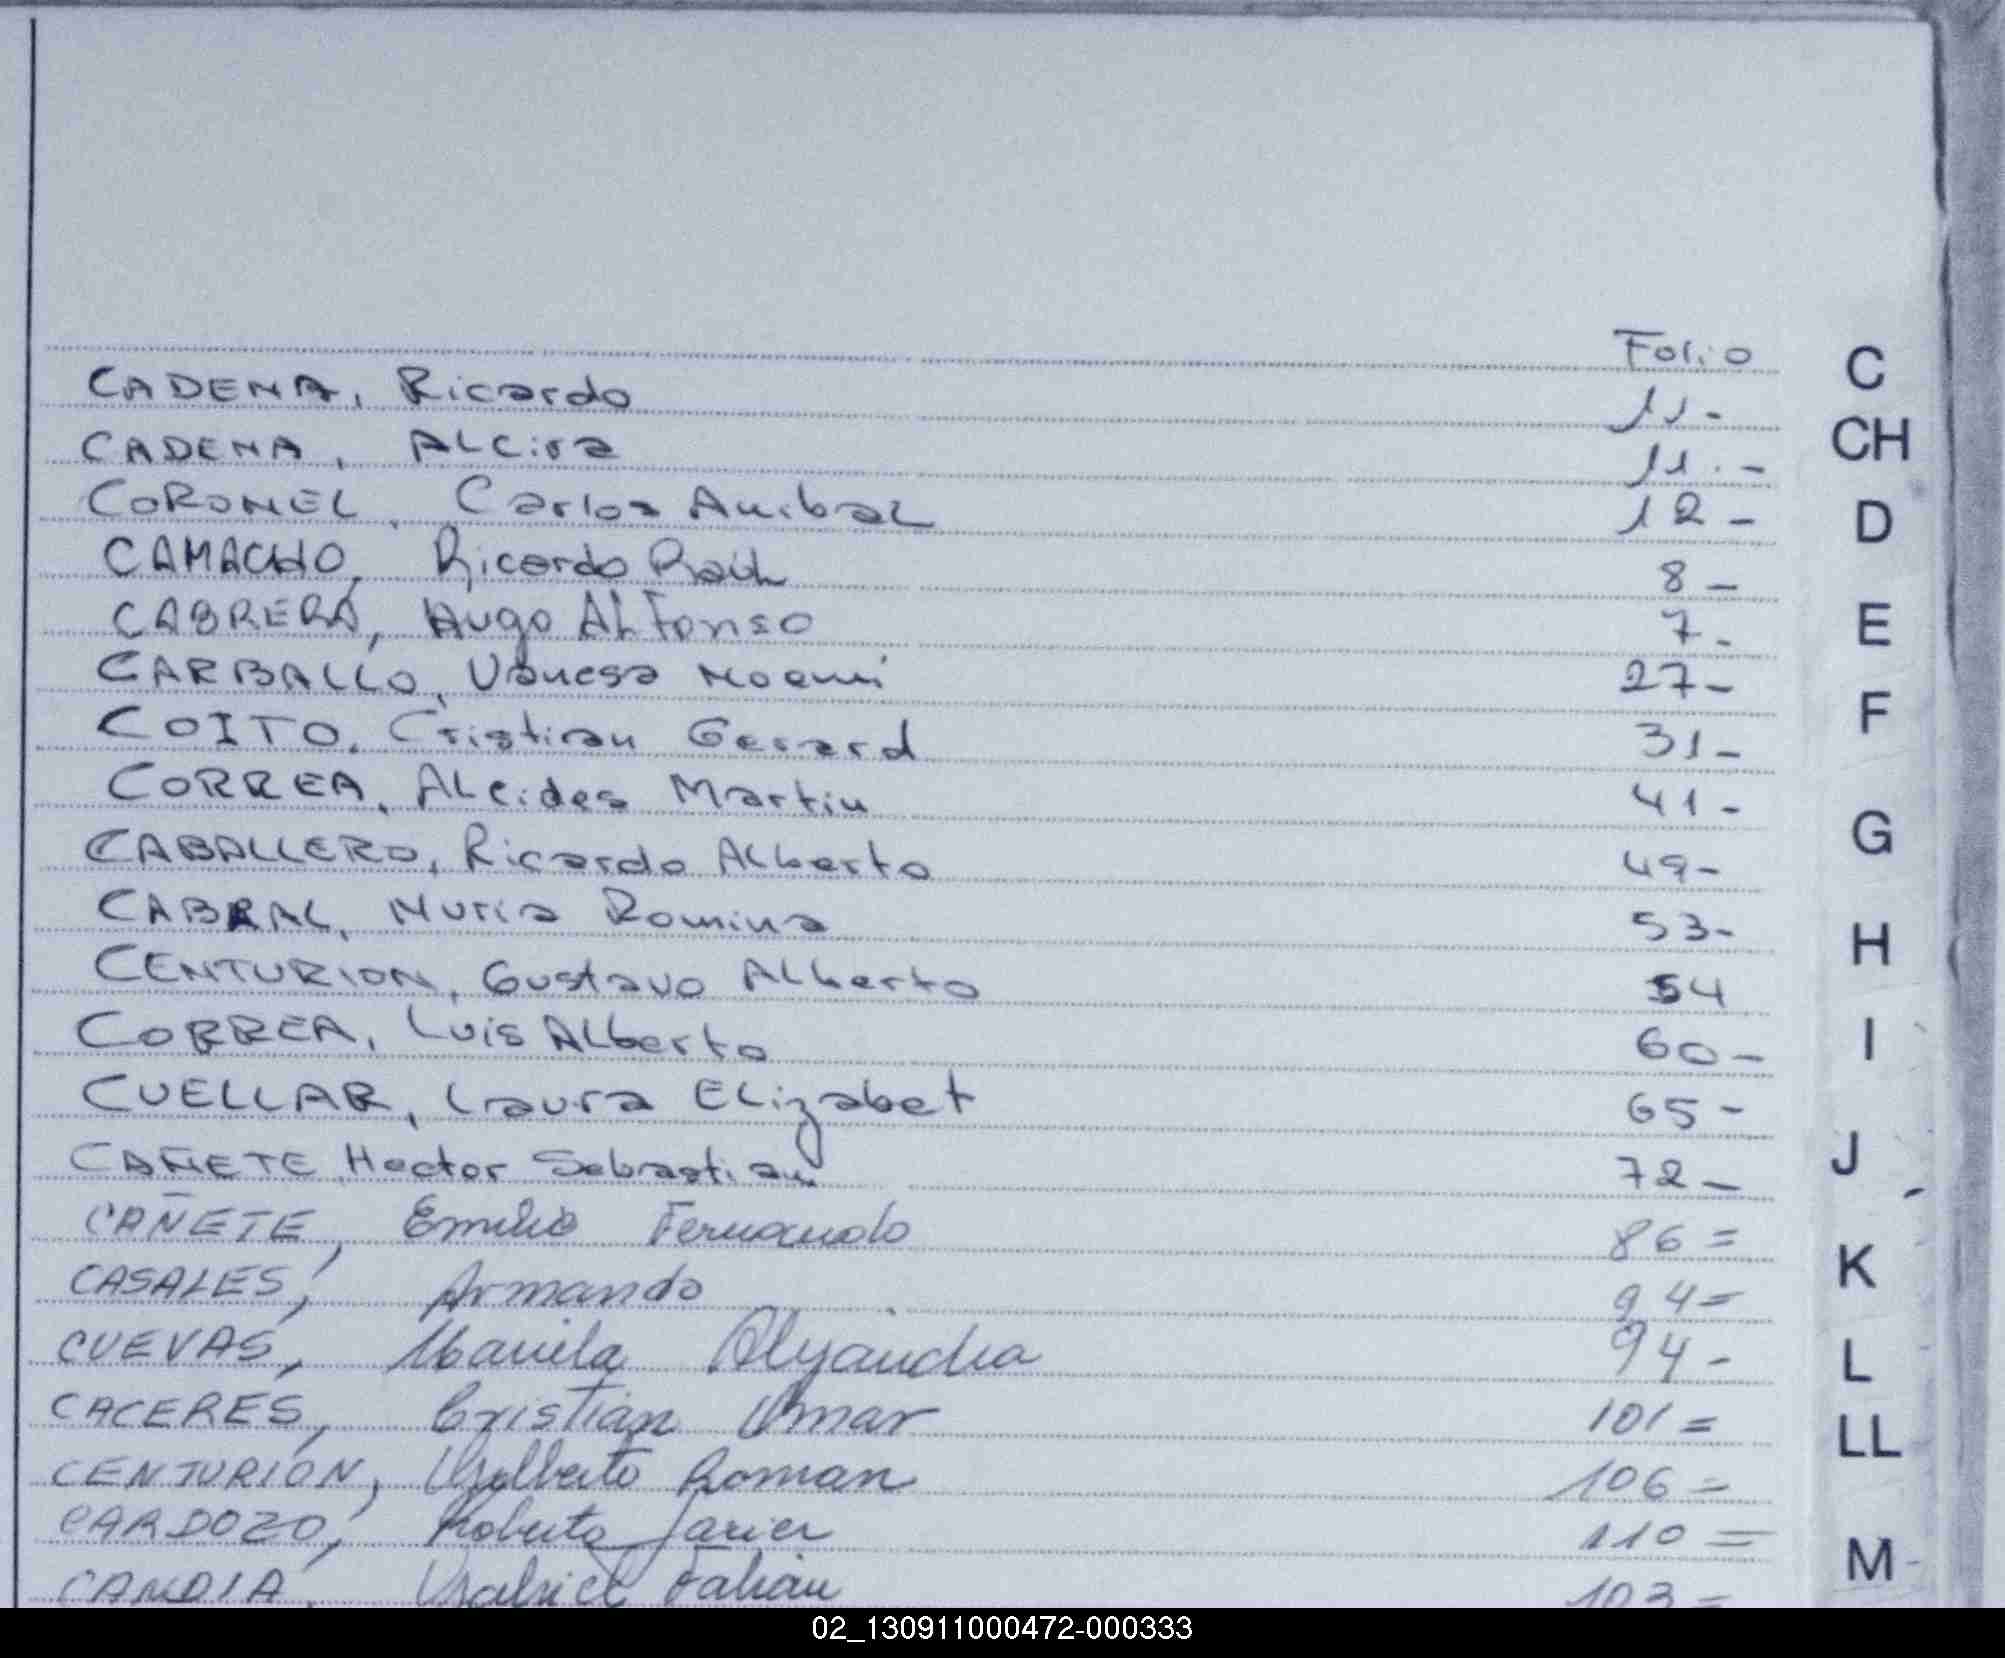 Folio C
CADENA, Ricardo 11-
CADENA, ALcira 11.- CH
CORONEL, Carlos Anibal 12- D
CAMACHO, Ricardo Raúl 8-
CABRERA, Hugo ALFonso 7- E
CARBALLO, Vanesa Noemi 27-
COITO, Cristian Gerard 31- F
CORREA, ALcides Martin 41-
CABALLERO, Ricardo ALberto 49- G
CABRAL, Nuria Romina 53- H
CENTURION, Gustavo ALberto 54
CORREA, Luis ALberto 60- I
CUELLAR, Laura ELizabet 65-
CAÑETE, Hector Sebastian 72- J
CAÑETE, Emilio Fernando 86=
CASALES, Armando 94= K
CUEVAS, Mariela Alejandra 94- L
CACERES, Cristian Omar 101= LL
CENTURION, Roman 106=
CARDOZO, Roberto Javier 110=
CANDIA, Gabriel Fabian 103= M
02_130911000472-000333